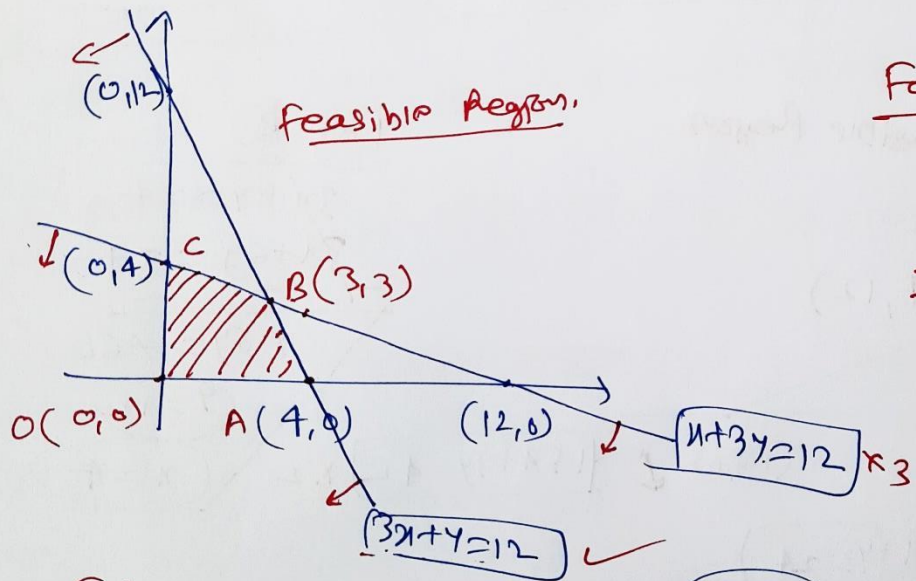 (0,12)
Feasible Region.
Fo
(0,4)
C
B(3,3)
O(0,0)
A(4,0)
(12,0)
x+3y=12 ×3
3x+y=12